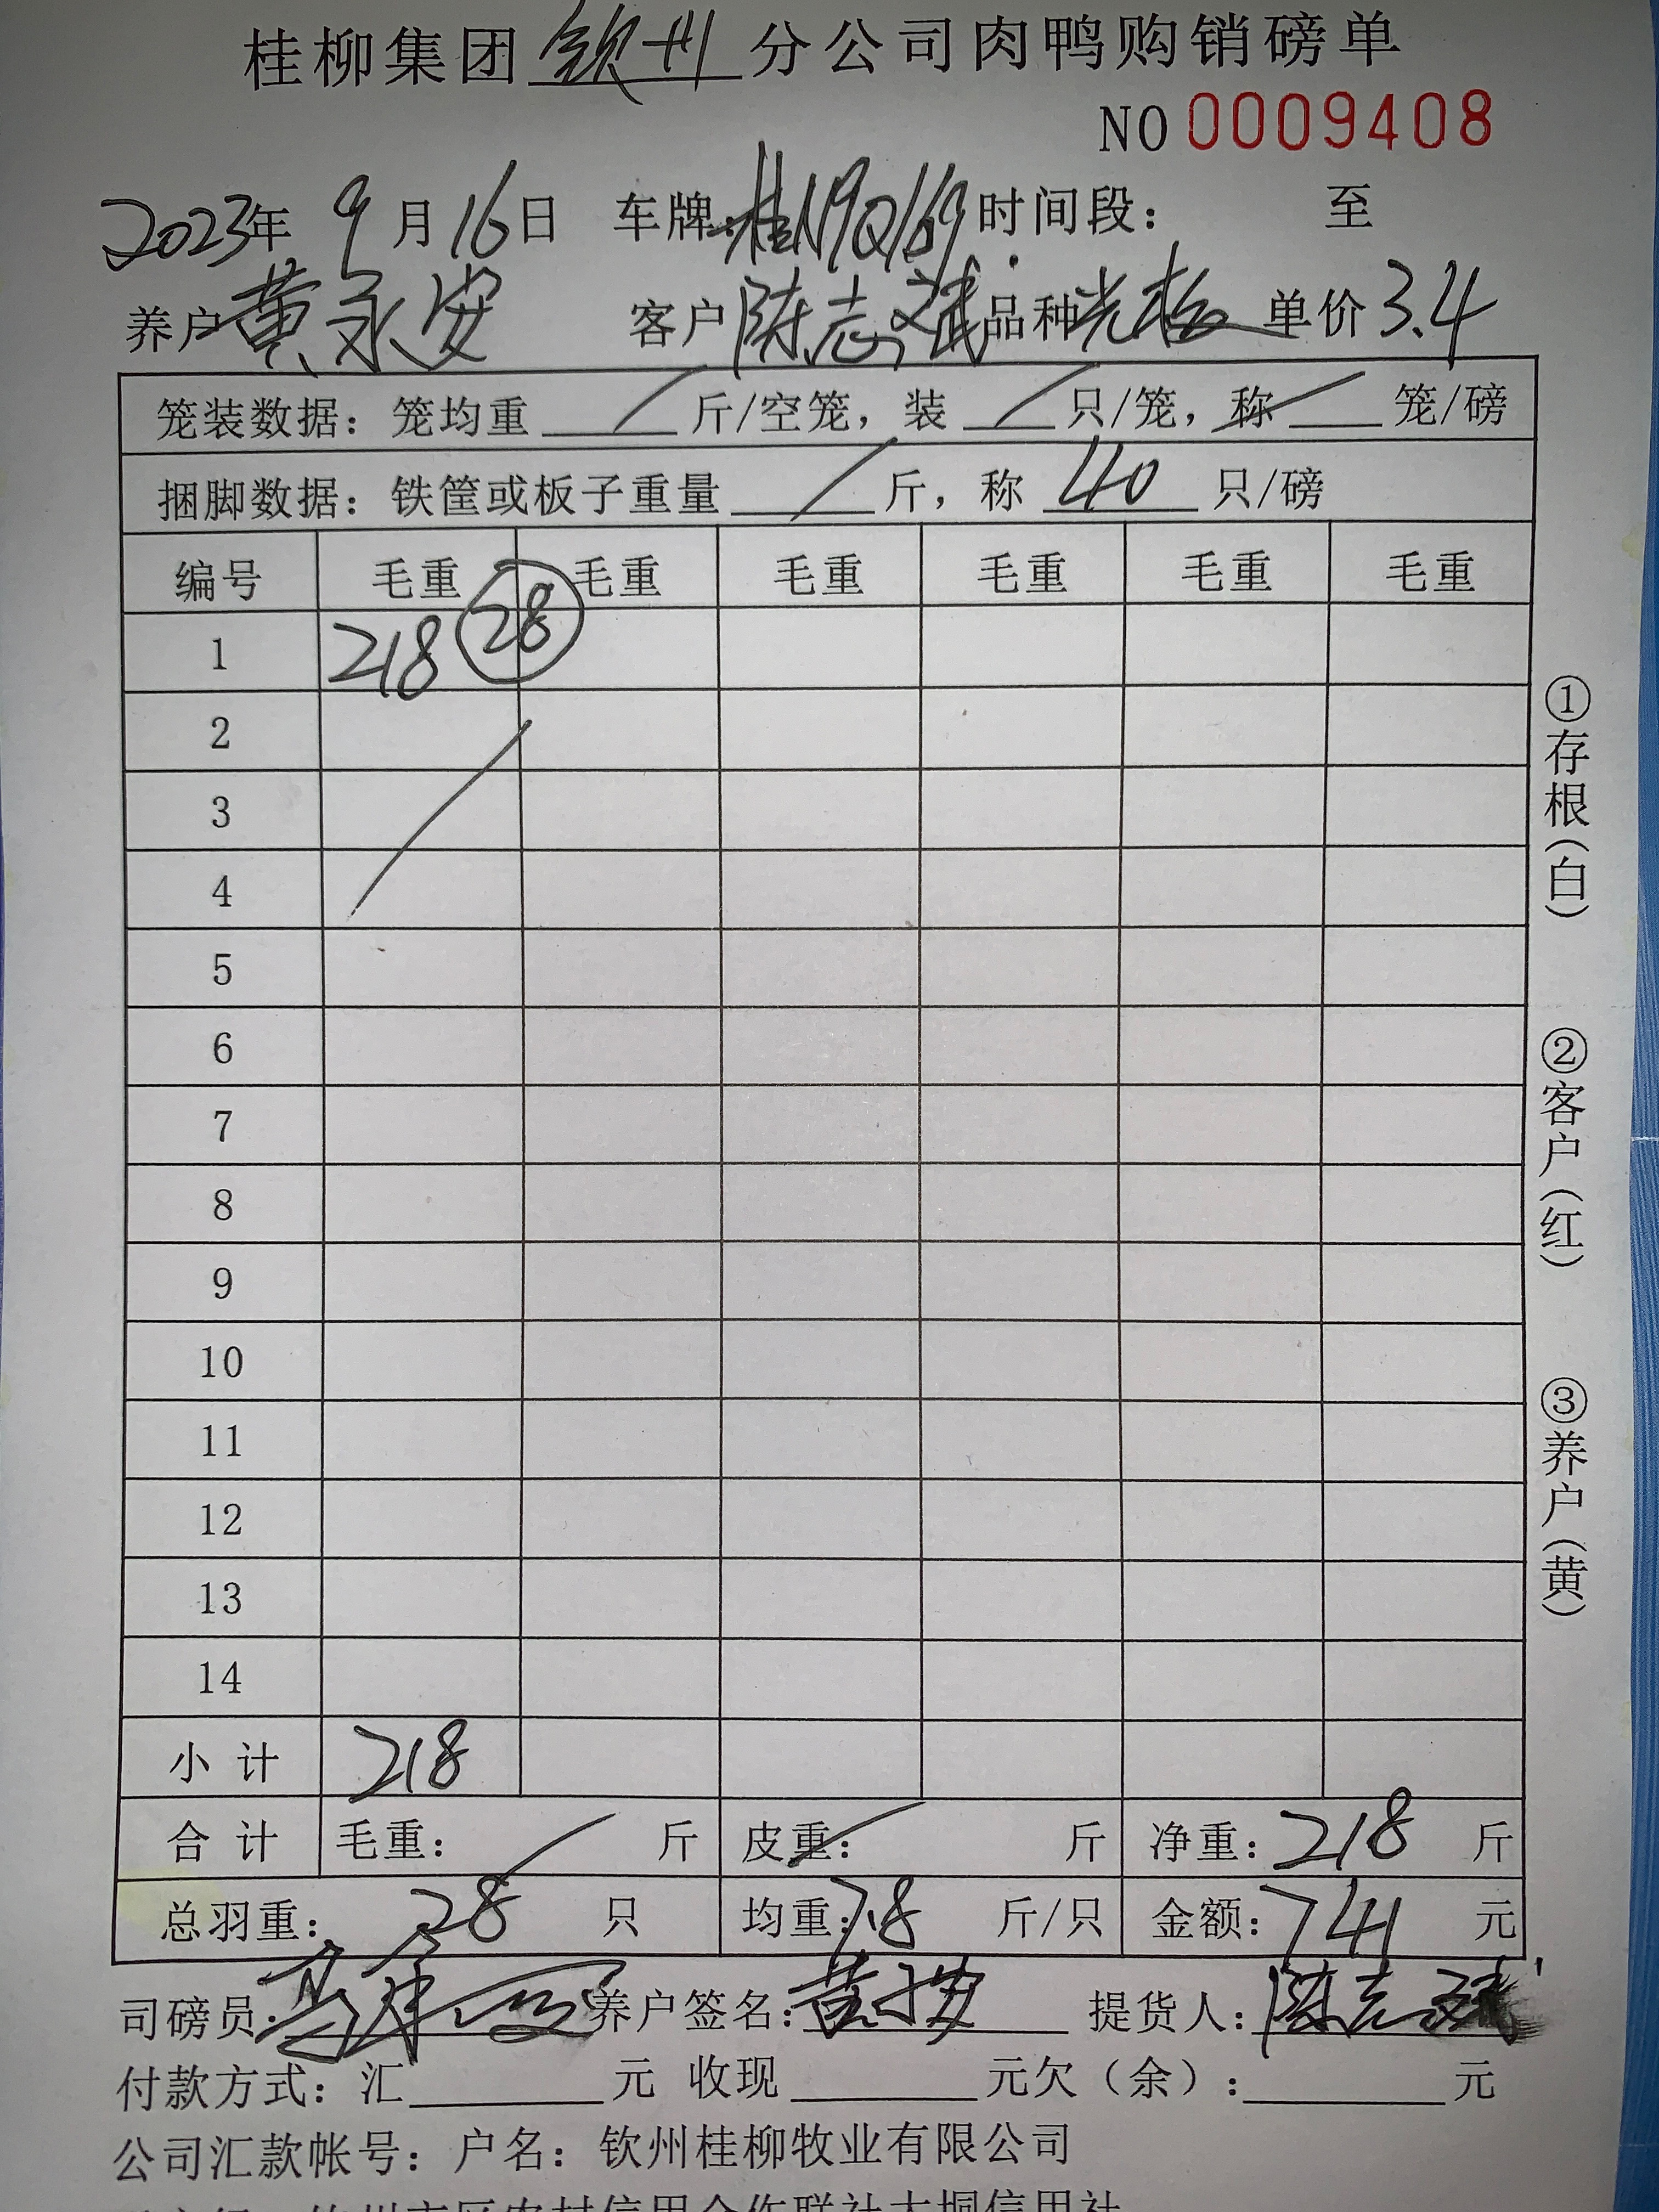 桂柳集团钦州分公司肉鸭购销磅单
NO 0009408
2023年 9月16日 车牌:桂N9Q169 时间段: 至
养户 黄永安 客户 陈志斌 品种 单价3.4
笼装数据:笼均重 / 斤/空笼,装 / 只/笼,称 / 笼/磅
捆脚数据:铁筐或板子重量 / 斤,称 40 只/磅
编号 毛重 毛重 毛重 毛重 毛重 毛重
1 218 28
2
3
4
5
6
7
8
9
10
11
12
13
14
小 计 218
合 计 毛重: / 斤 皮重: / 斤 净重:218 斤
总羽重: 28 只 均重:7.8 斤/只 金额:741 元
司磅员: 养户签名: 提货人:陈志斌
付款方式:汇 元 收现 元欠(余): 元
公司汇款帐号:户名:钦州桂柳牧业有限公司
①存根(白)
②客户(红)
③养户(黄)